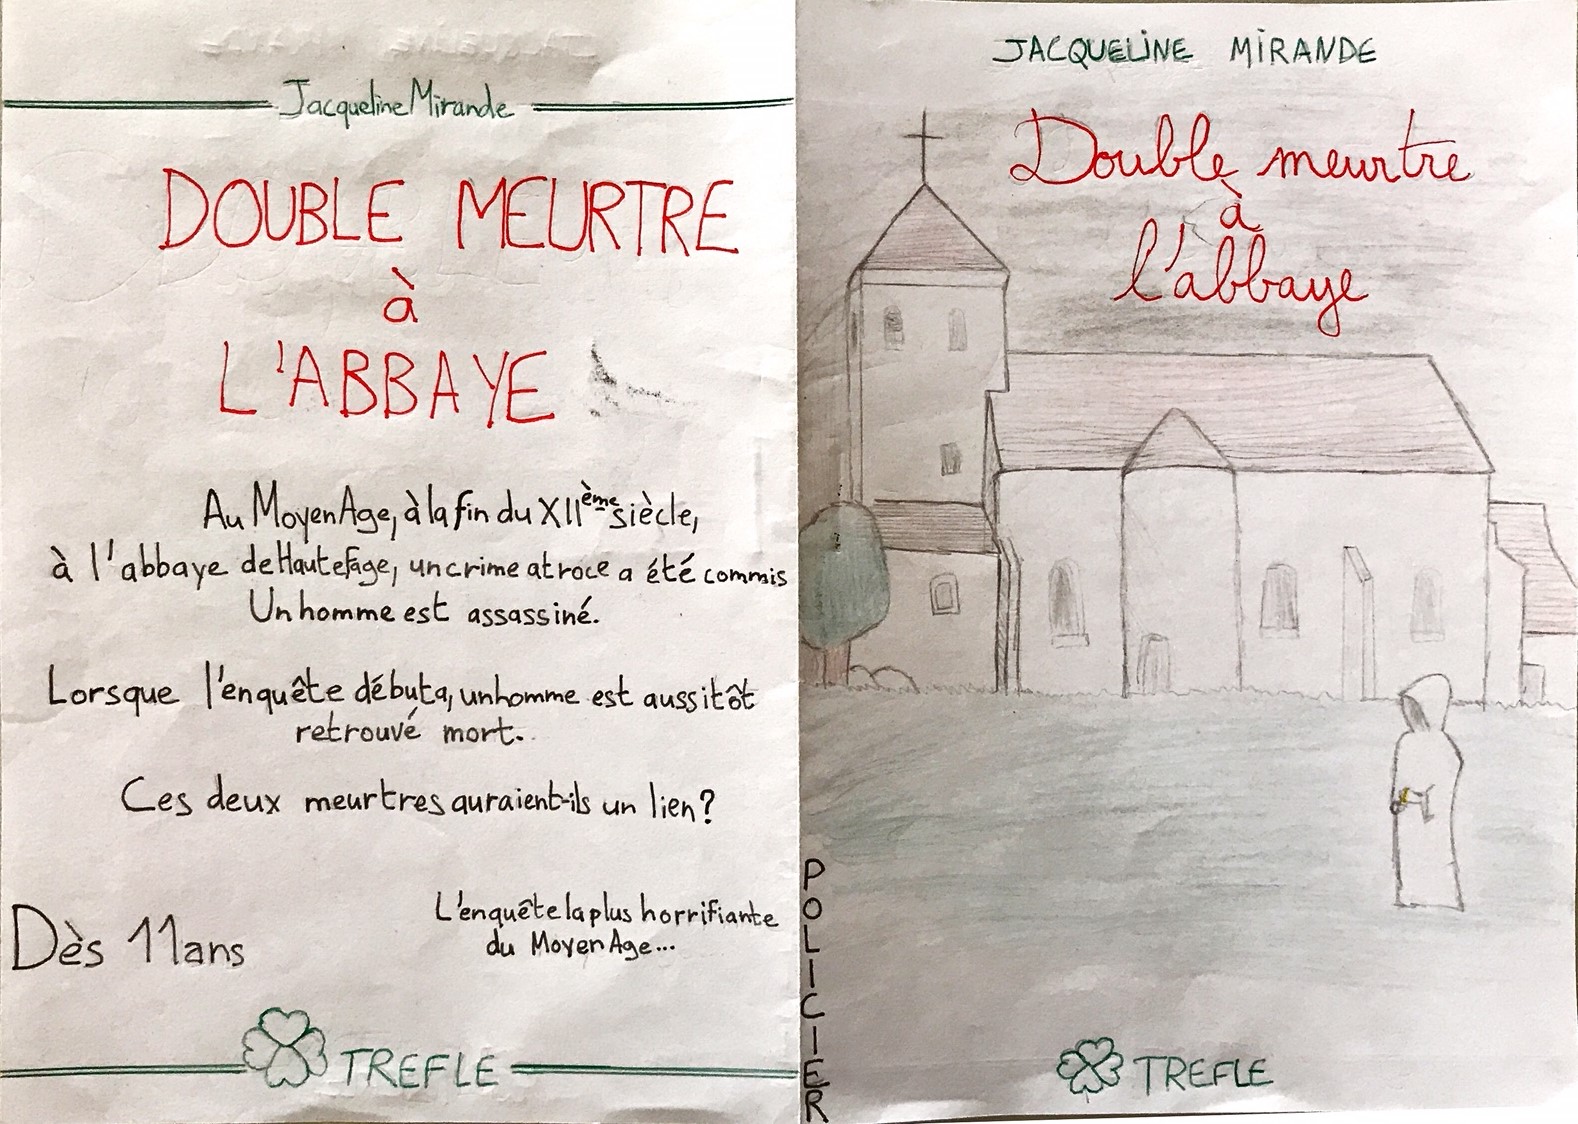 Jacqueline Mirande
DOUBLE MEURTRE
à
L'ABBAYE
Au Moyen Age, à la fin du XIIème siècle,
à l'abbaye de Hautefage, un crime atroce a été commis
Un homme est assassiné.
Lorsque l'enquête débuta, un homme est aussitôt
retrouvé mort.
Ces deux meurtres auraient-ils un lien?
Dès 11 ans
L'enquête la plus horrifiante
du Moyen Age...
TREFLE
POLICIER
JACQUELINE MIRANDE
Double meurtre
à
l'abbaye
TREFLE